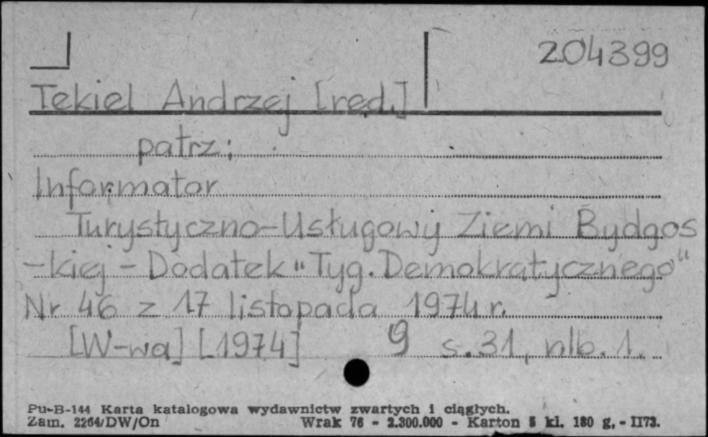 204399
Tekiel Andrzej [red.]
patrz:
Informator
Turystyczno-Usługowy Ziemi Bydgos
-kiej - Dodatek "Tyg. Demokratycznego"
Nr 46 z 17 listopada 1974 r.
[W-wa] [1974] 9 s. 31, nlb. 1.
Pu-B-144 Karta katalogowa wydawnictw zwartych i ciągłych.
Zam. 2264/DW/On Wrak 76 - 2.300.000 - Karton 5 kl. 180 g. - II73.